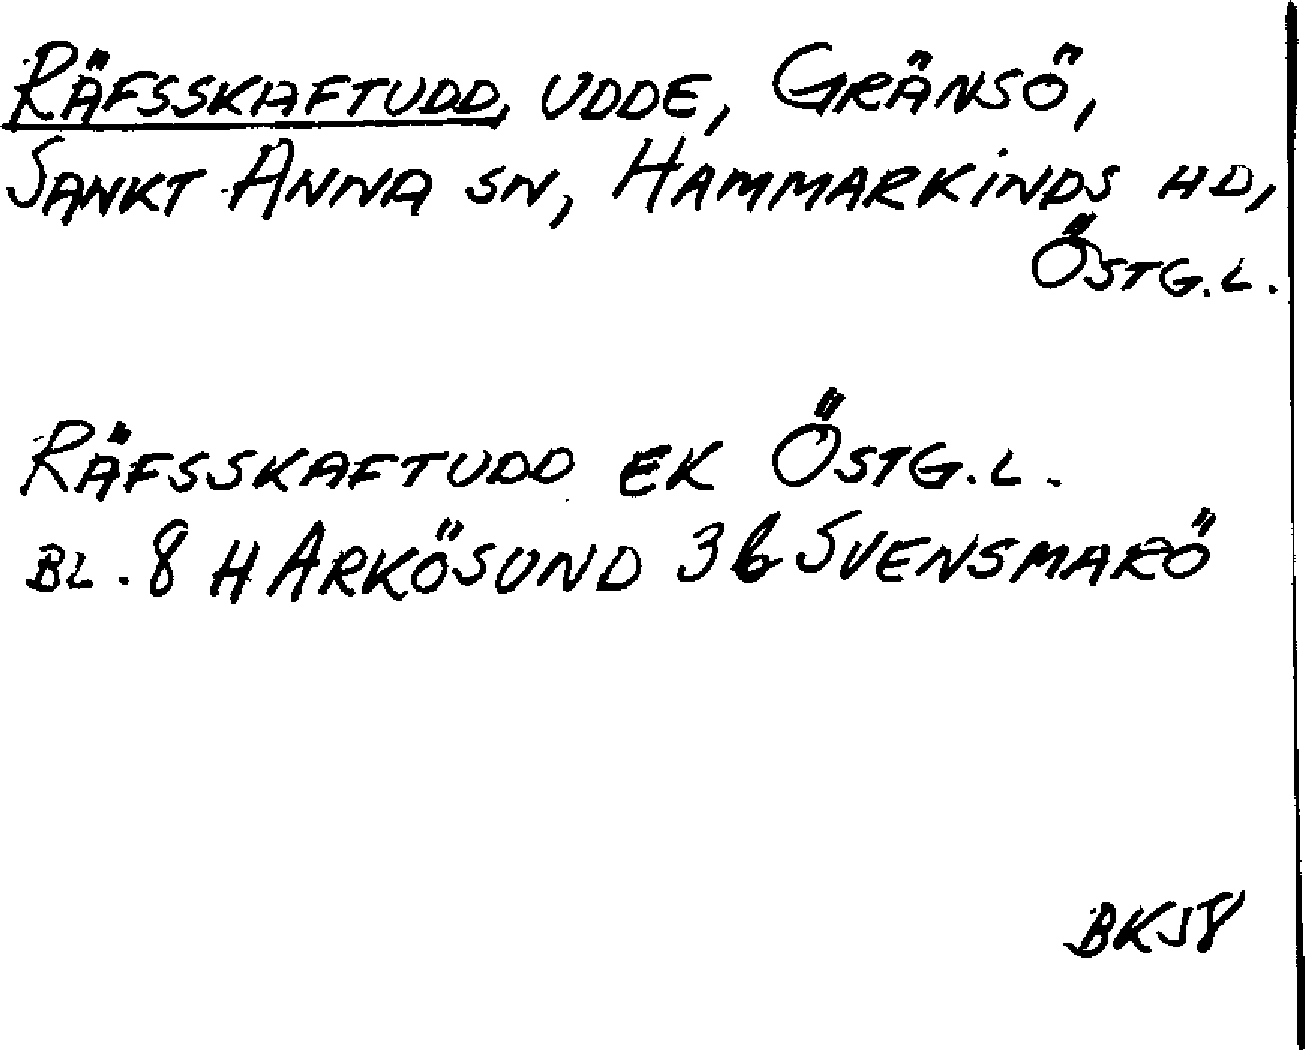 Räfsskaftudd, udde, Gränsö,
Sankt Anna sn, Hammarkinds hd,
Östg.l.
Räfsskaftudd EK Östg.l.
bl. 8 H Arkösund 3 b Svensmarö